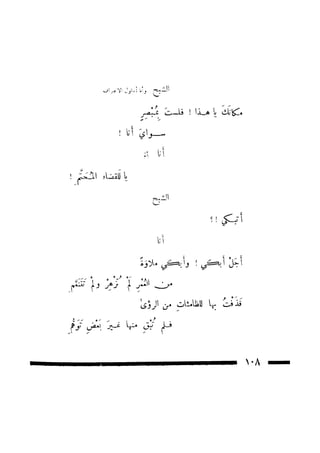 الشيخ وأنا أحاول الاعتراض
مكانَكَ يا هـذا ! فلستَ بِمُبْصِرٍ
ســوايَ أنا !
أنا
يا للقضاء المُحَتَّمِ !
الشيخ
أتبـكي ! ؟
أنا
أجَلْ أبكي ! وأبكي ملاوَةً
مـن العُمْرِ لمْ تُزْهِرْ ولمْ تَتَنَعَّمِ
قذفْتُ بها للظامئاتِ من الرؤىٰ
فـلم تُبْقِ منها غـيرَ بَعْضِ تَوَهُّمِ
١٠٨